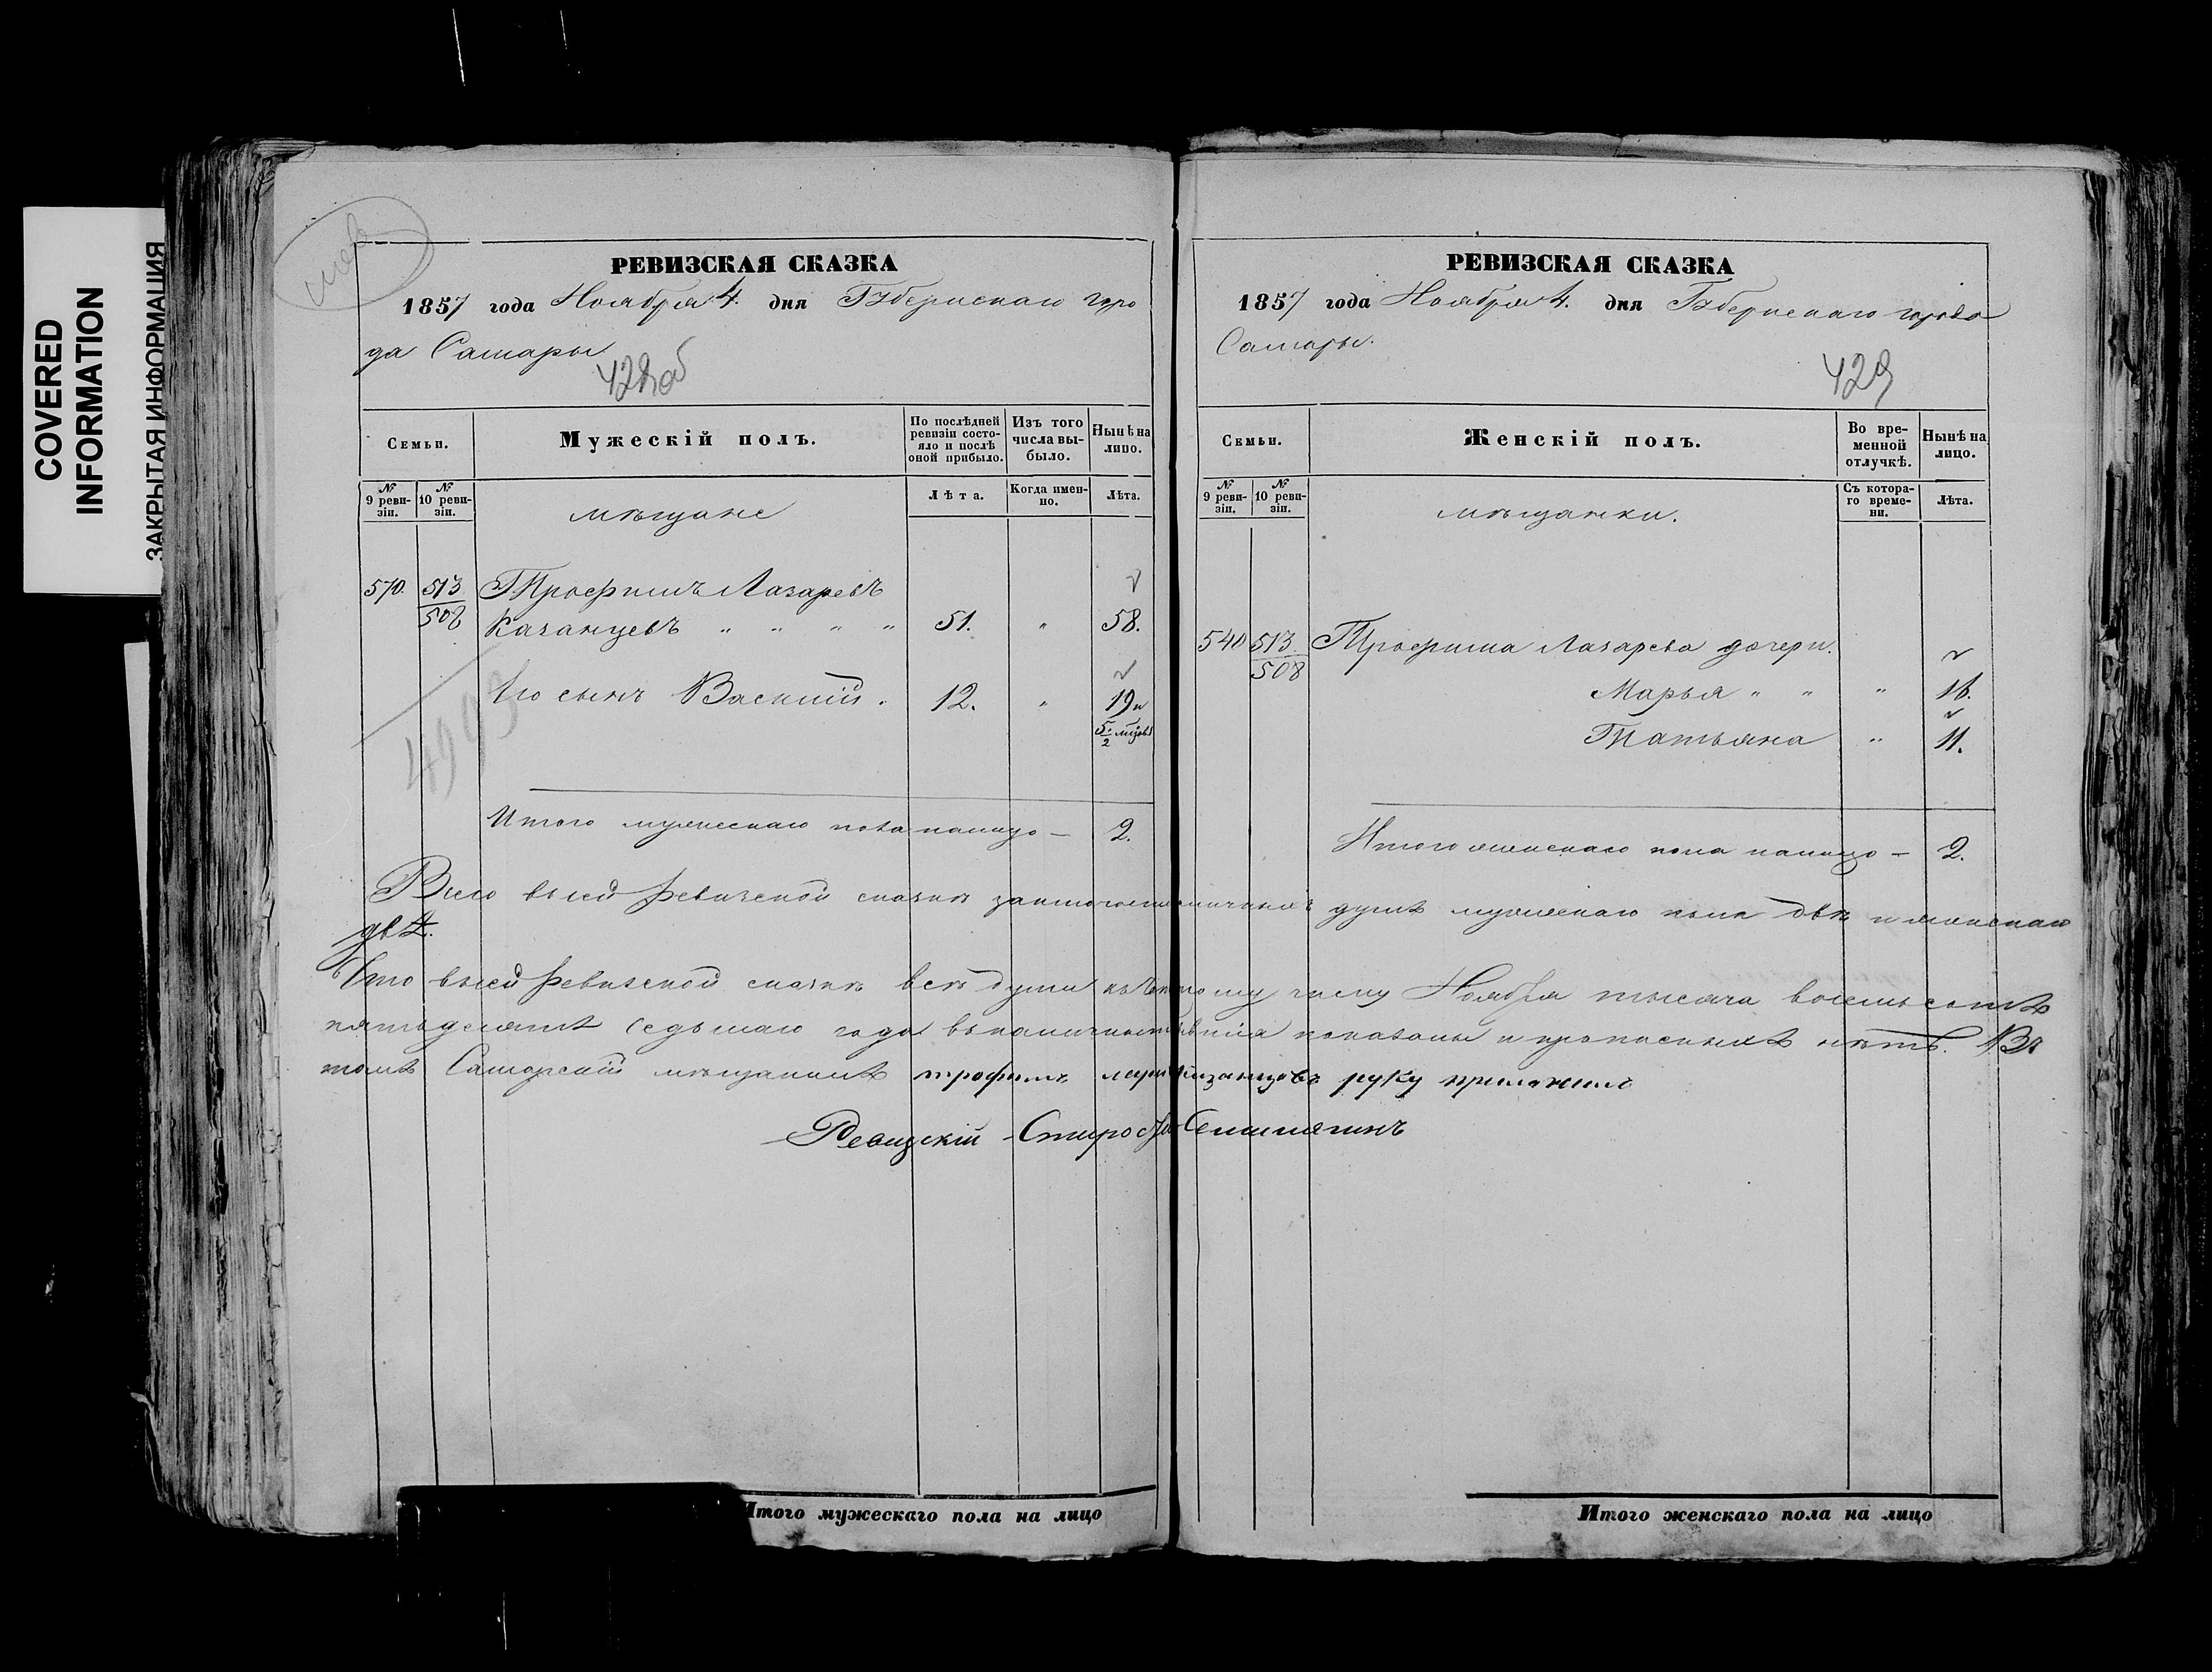 COVERED
INFORMATION
ЗАКРЫТАЯ ИНФОРМАЦИЯ
РЕВИЗСКАЯ СКАЗКА
1857 года Ноября 4. дня Губернскаго горо
да Самары
428об
Семьи.
Мужескій полъ.
По послѣдней ревизіи состо-
яло и послѣ оной прибыло.
Изъ того числа вы-
было.
Нынѣ на лицо.
№ 9 реви-
зіи.
№ 10 реви-
зіи.
Лѣта.
Когда имен-
но.
Лѣта.
мѣщане
570. 513 Трофимъ Лазаревъ
508 Казанцевъ " " " " 51. " 58.
Его сынъ Василій. 12. " 19 и
4993
Итого мужескаго пола налицо — 2.
РЕВИЗСКАЯ СКАЗКА
1857 года Ноября 4. дня Губернскаго города
Самары.
429
Семьи.
Женскій полъ.
Во вре-
менной
отлучкѣ.
Нынѣ на
лицо.
№ 9 реви-
зіи.
№ 10 реви-
зіи.
Съ котора-
го време-
ни.
Лѣта.
мѣщанки.
540 513. Трофима Лазарева дочери.
508
Марья " " " 16.
Татьяна " 11.
Итого женскаго пола налицо — 2.
Всего въ сей ревизской сказкѣ душъ мужескаго пола двѣ и женскаго
двѣ.
Что въ сей ревизской сказкѣ всѣ души числу Ноября тысяча восемьсотъ
пятьдесятъ седьмаго года показаны и прописныхъ нѣтъ. Въ
томъ Самарскій мѣщанинъ трофимъ казанцовъ руку приложилъ
Ревизскій Староста
Итого мужескаго пола на лицо
Итого женскаго пола на лицо